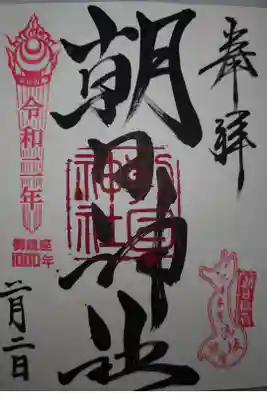 奉拝
朝日神社
令和二年
御鎮座
1000年
二月二日